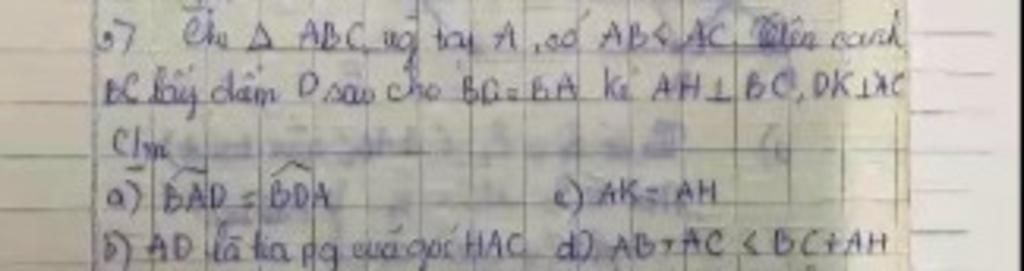 Cho Δ ABC vg tại A, có AB < AC. Trên cạnh
BC lấy điểm D sao cho BD = BA kẻ AH ⊥ BC, DK ⊥ AC
C/m
a) BAD = BDA c) AK = AH
b) AD là tia pg của góc HAC d) AB + AC < BC + AH